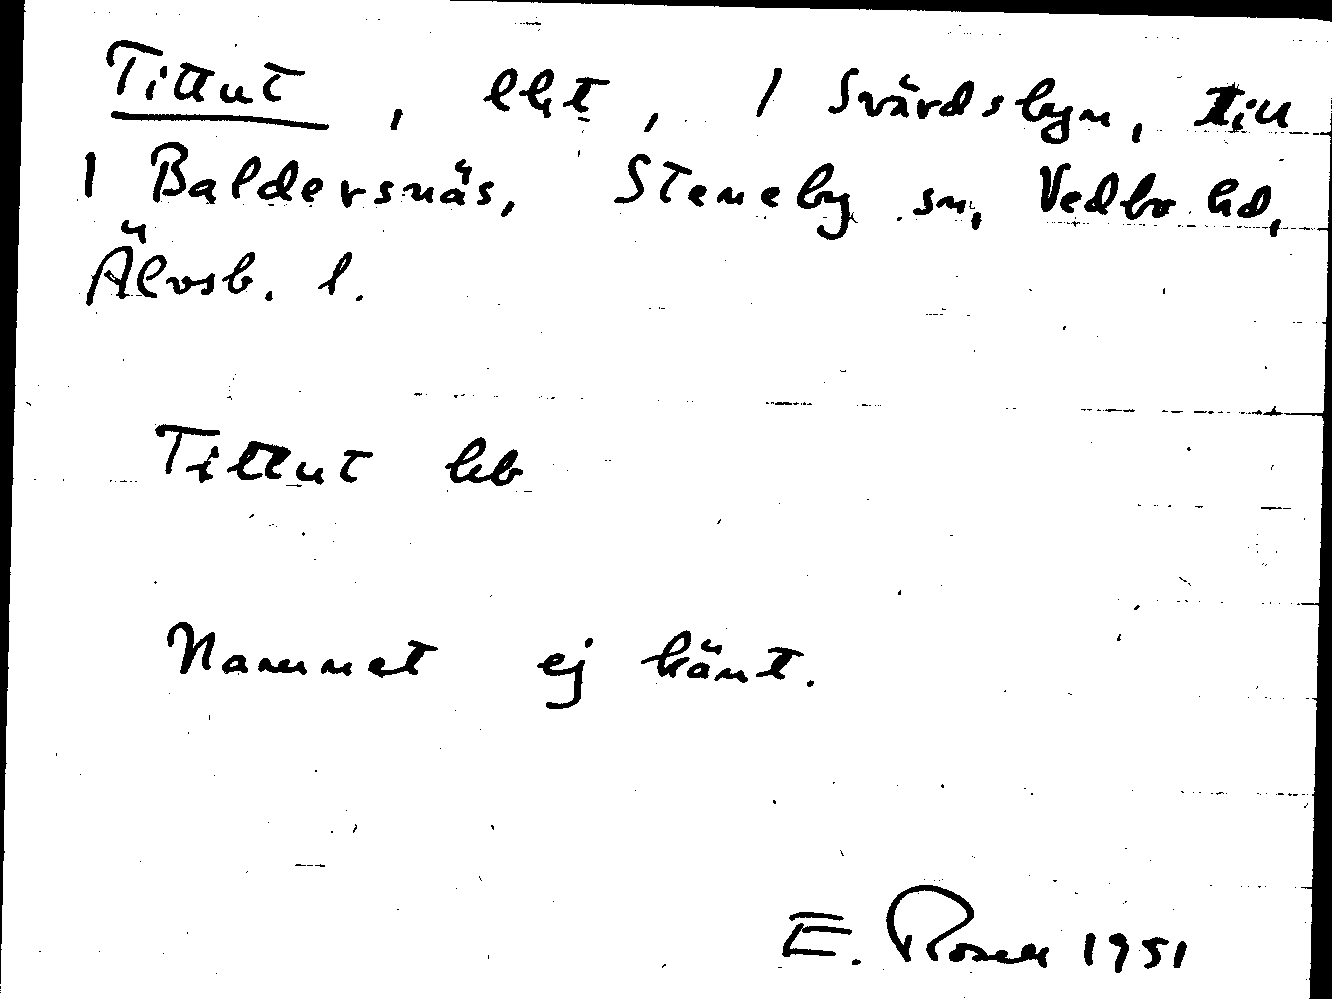 Tittut, lht, 1 Svärdsbyn, till
1 Baldersnäs, Steneby sn, Vedbo hd,
Älvsb. l.
Tittut hb
Namnet ej känt.
E. Rosell 1951